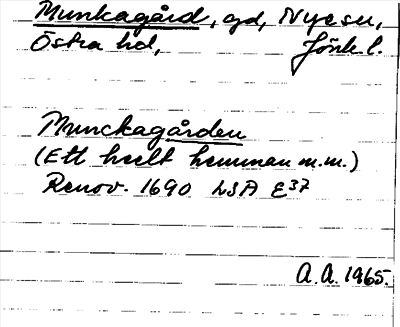 Munkagård, gd, Nye sn,
Östra hd, Jönk l.
Munckagården
(Ett heelt hemman m.m.)
Renov. 1690 LSA E37
A.A. 1965.